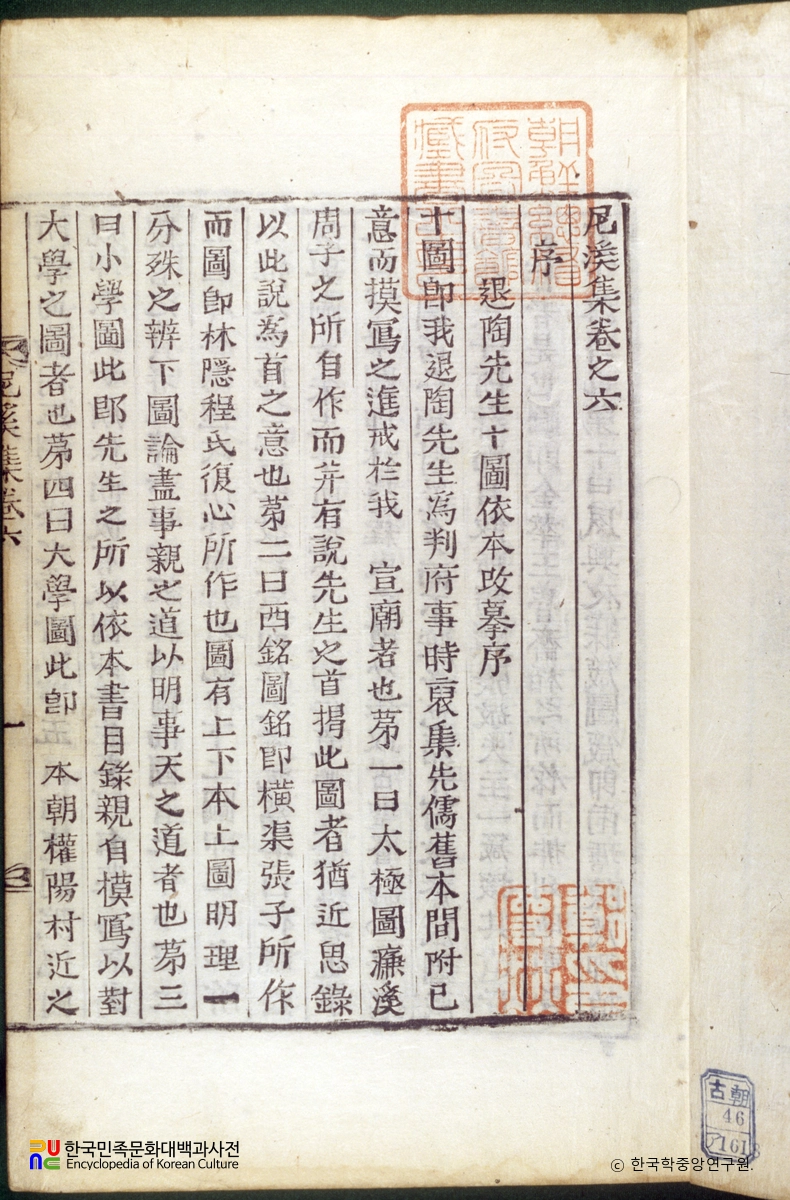 尼溪集卷之六
序
退陶先生十圖依本改摹序
十圖卽我退陶先生爲判府事時裒集先儒舊本間附己
意而摸寫之進戒於我 宣廟者也第一曰太極圖濂溪
周子之所自作而并有說先生之首揭此圖者猶近思錄
以此說爲首之意也第二曰西銘圖銘卽橫渠張子所作
而圖卽林隱程氏復心所作也圖有上下本上圖明理一
分殊之辨下圖論盡事親之道以明事天之道者也第三
曰小學圖此郎先生之所以依本書目錄親自模寫以對
大學之圖者也第四曰大學圖此卽 本朝權陽村近之
尼溪集卷六
一
朝鮮總督
府圖書館
藏書之印
古朝
46
가161
한국민족문화대백과사전
Encyclopedia of Korean Culture
ⓒ 한국학중앙연구원.